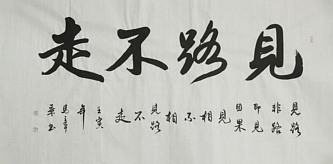 見路不走
見路
非路
即見
因果
見相不相
見路
不走
壬寅
年